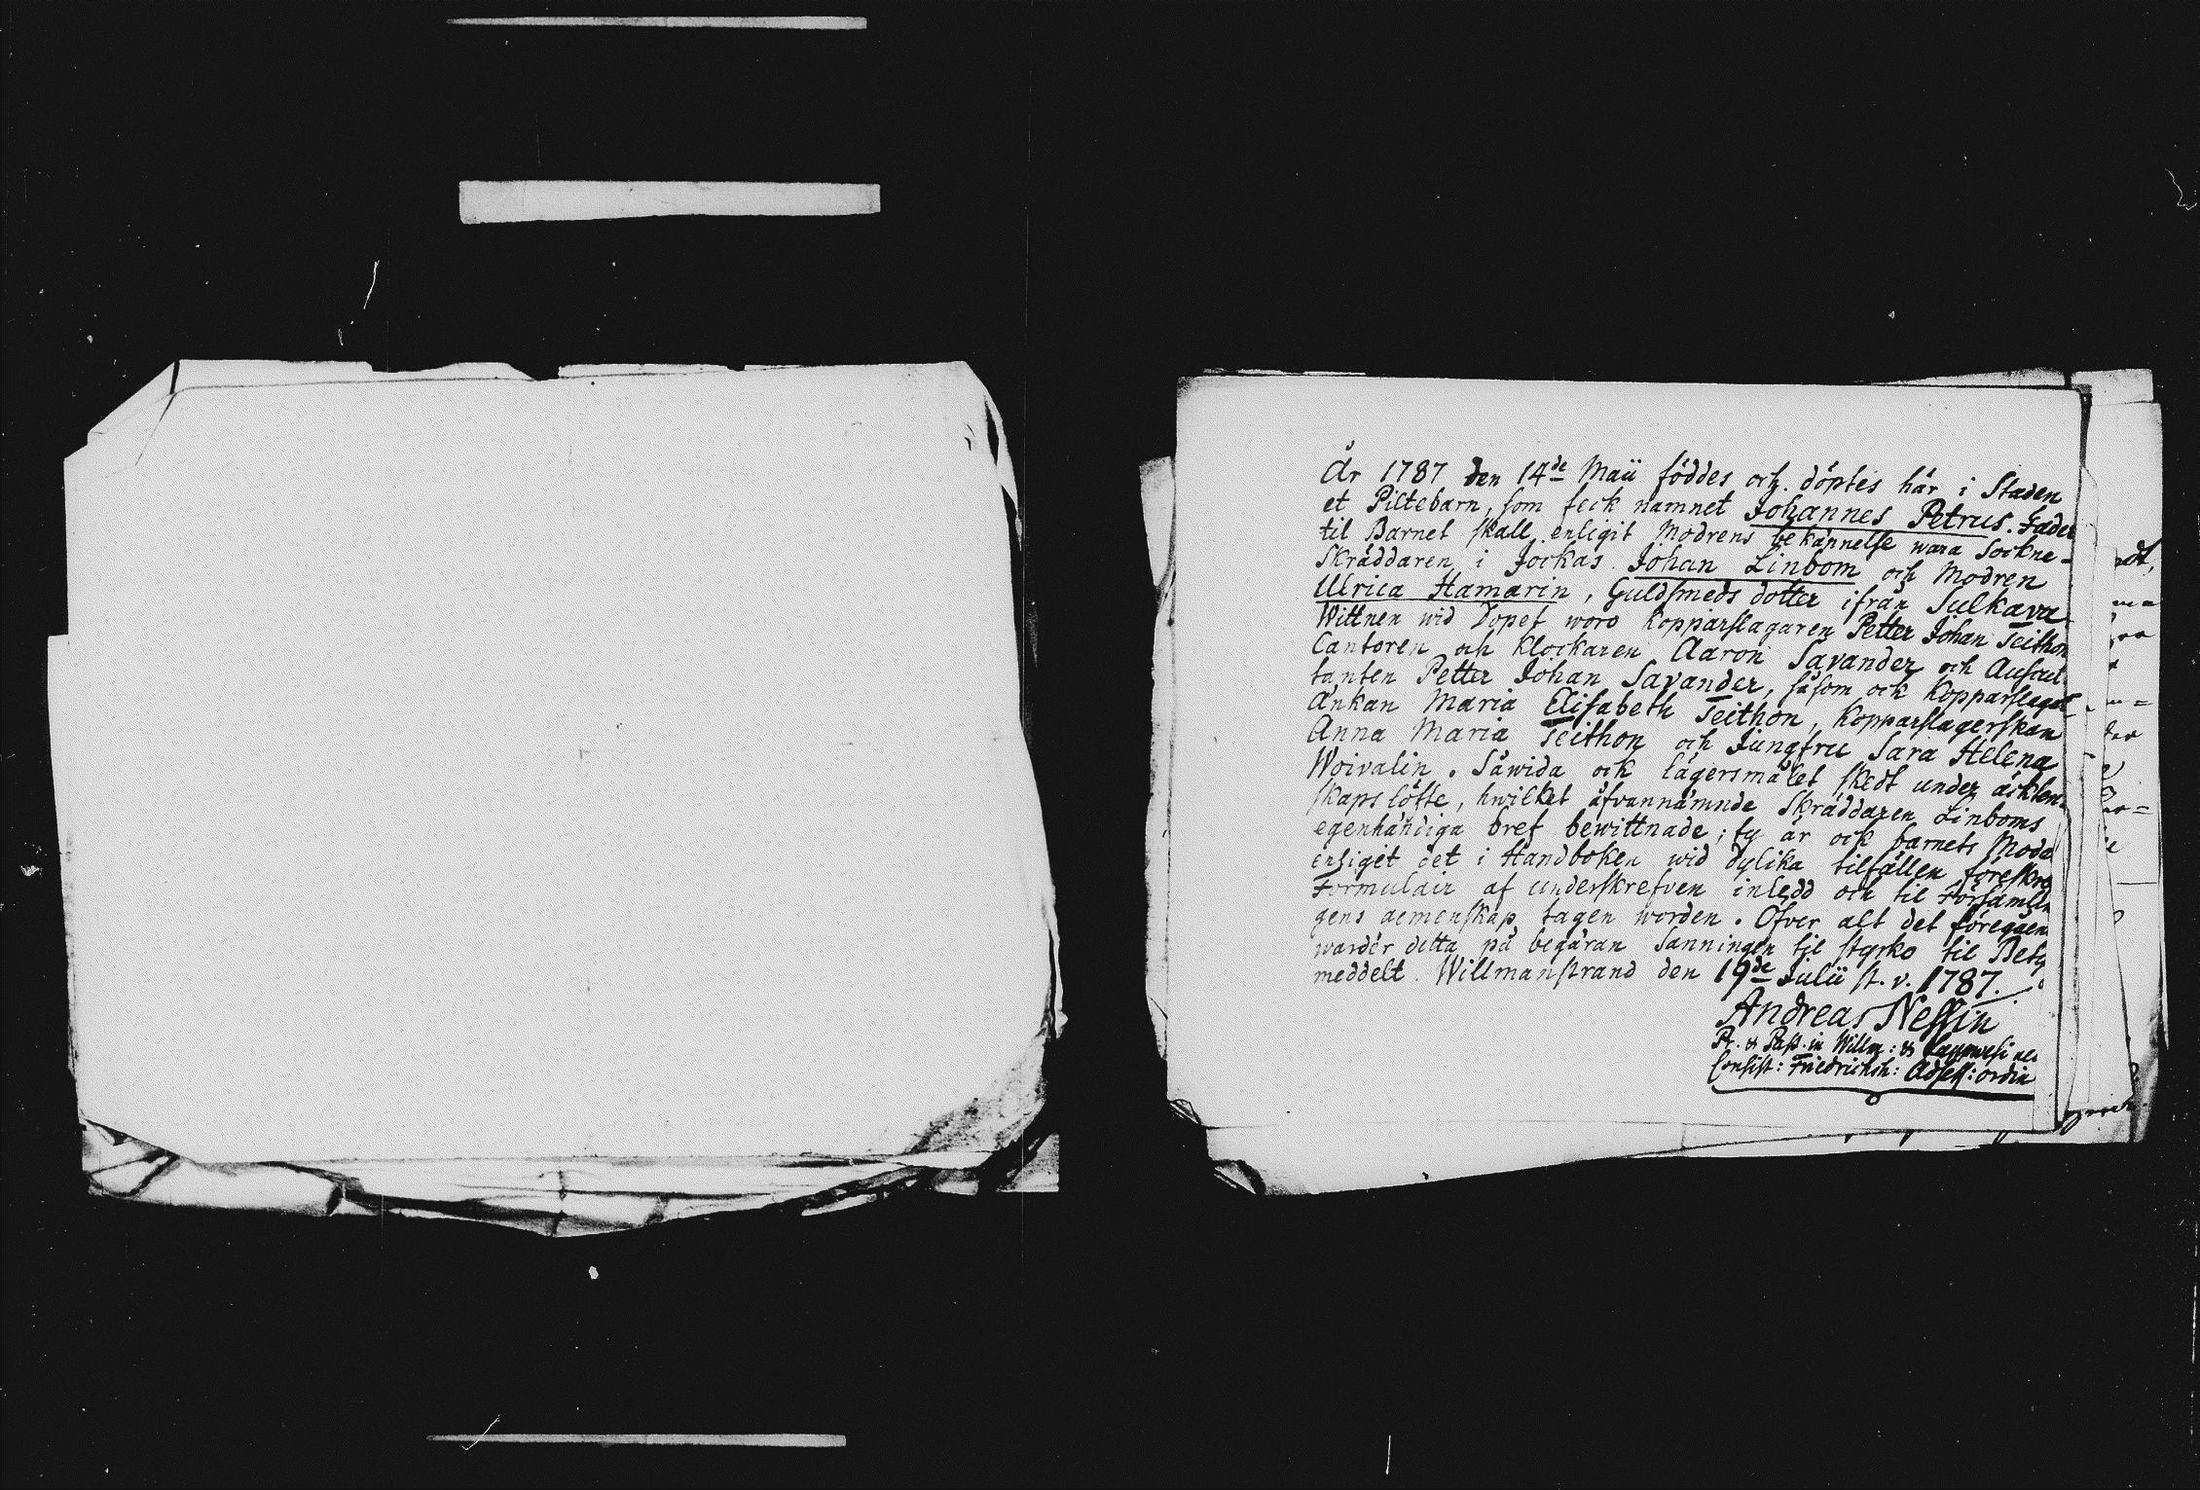 År 1787 den 14de Maii föddes och döptes här i Staden
et Piltebarn, som feck namnet Johannes Petrus. Fader
til Barnet skall enligit Modrens bekännelse wara Sockne-
Skräddaren i Jockas Johan Linbom och Modren
Ulrica Hamarin, Guldsmeds dotter ifrån Sulkava
Wittnen wid Dopet woro Kopparslagaren Petter Johan Teithon
Cantoren och Klockaren Aaron Savander och Auscul
tanten Petter Johan Savander, såsom ock Kopparslagar
Änkan Maria Elisabeth Teithon, Kopparslagerskan
Anna Maria Teithon och Jungfru Sara Helena
Woivalin. Såwida ock lägersmålet skedt under äckten-
skaps löfte, hwilket åfvannämnde Skräddaren Linboms
egenhändiga bref bewittnade; ty är ock barnets Mode
enligit det i Handboken wid dylika tilfällen föreskre
Formulair af underskrefven inledd och til Församlin
gens gemenskap tagen worden. Öfver alt det föregåen
warder detta på begäran Sanningen til styrko til Bety
meddelt. Willmanstrand den 19de Julii st. v. 1787.
Andreas Nessin
P. & Past. in Willm: &
Consist: Friedrichsh: Adsess: ordin